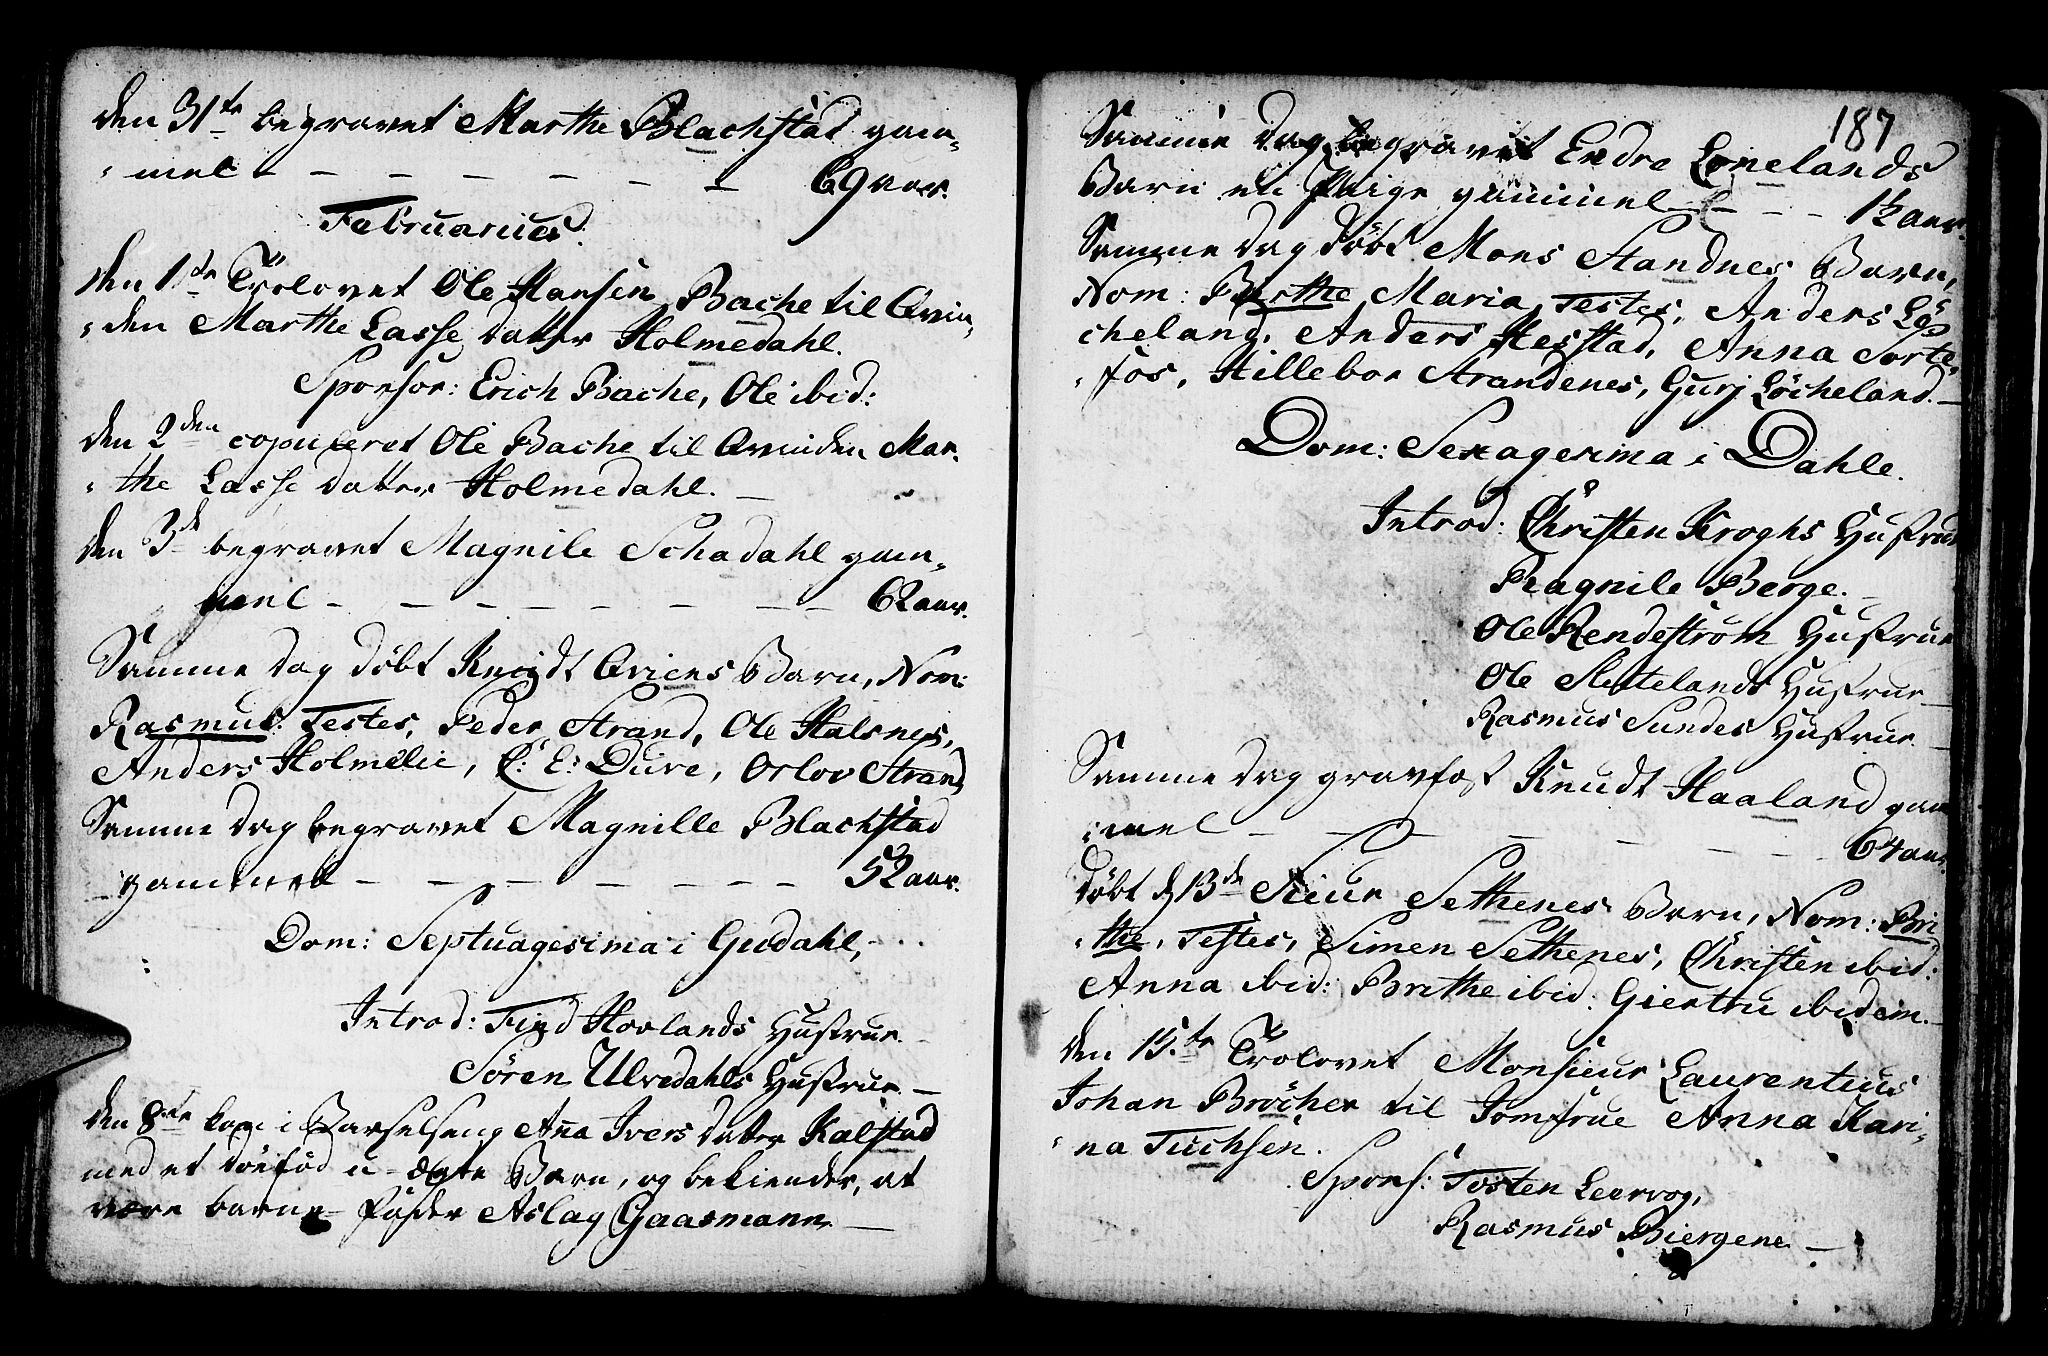 den 31te begravet Marthe Blachstad gam-
mel - - - - - - - 69 aar.
Februarius.
den 1te Trolovet Ole Hansen Bache til Qvin-
den Marthe Lasse datter Holmedahl.
Sponsor: Erich Bache, Ole ibid:
den 2den copuleret Ole Bache til Qvinden Mar-
the Lasse datter Holmedahl. -
den 3de begravet Magnile Schadahl gam-
mel - - - - - - - - 62 aar.
Samme dag döbt Knudt Qviens Barn, Nom:
Rasmus. Testes, Peder Strand, Ole Halsnes,
Anders Holmelie, C: E: Dure, Orlov Strand
Samme dag begravet Magnille Blachstad
gammel - - - - - - - 52 aar.
Dom: Septuagesima i Gudahl,
Introd: Find Hovlands Hustrue
Sören Ulvedahls Hustrue -
den 8de kom i Barselseng Aña Ivers datter Kalstad
med et död född u-ægte Barn, og bekiender, at
være barne-fader Aslag Gaasmann. -
187
Samme dag begravet Endre Lonelands
Barn en Piige gammel - - - 1½ aar.
Samme dag döbt Mons Standnes Barn,
Nom: Berthe Maria, Testes, Anders Lö-
cheland, Anders Hesstad, Anna Sorte-
fos, Hillebor Strandenes, Gurj Löcheland. -
Dom: Sexagesima i Dahle.
Introd: Christen Kroghs Hustrue
Ragnile Berge. -
Ole Rendeström Hustrue
Ole Sletelands Hustrue -
Rasmus Sundes Hustrue. -
Samme dag gravfæst Knudt Haaland gam
mel - - - - - - - 64 aar.
döbt d 13de Siur Sethenes Barn, Nom: Bri-
the, Testes, Simen Sethenes, Christen ibid:
Anna ibid: Brithe ibid: Giertru ibidem. -
den 15.te Trolovet Monsieur Laurentius
Johan Bröcher til Jomfrue Anna Kari-
na Tuchsen.
Spons: Tosten Leervog,
Rasmus Biergene -